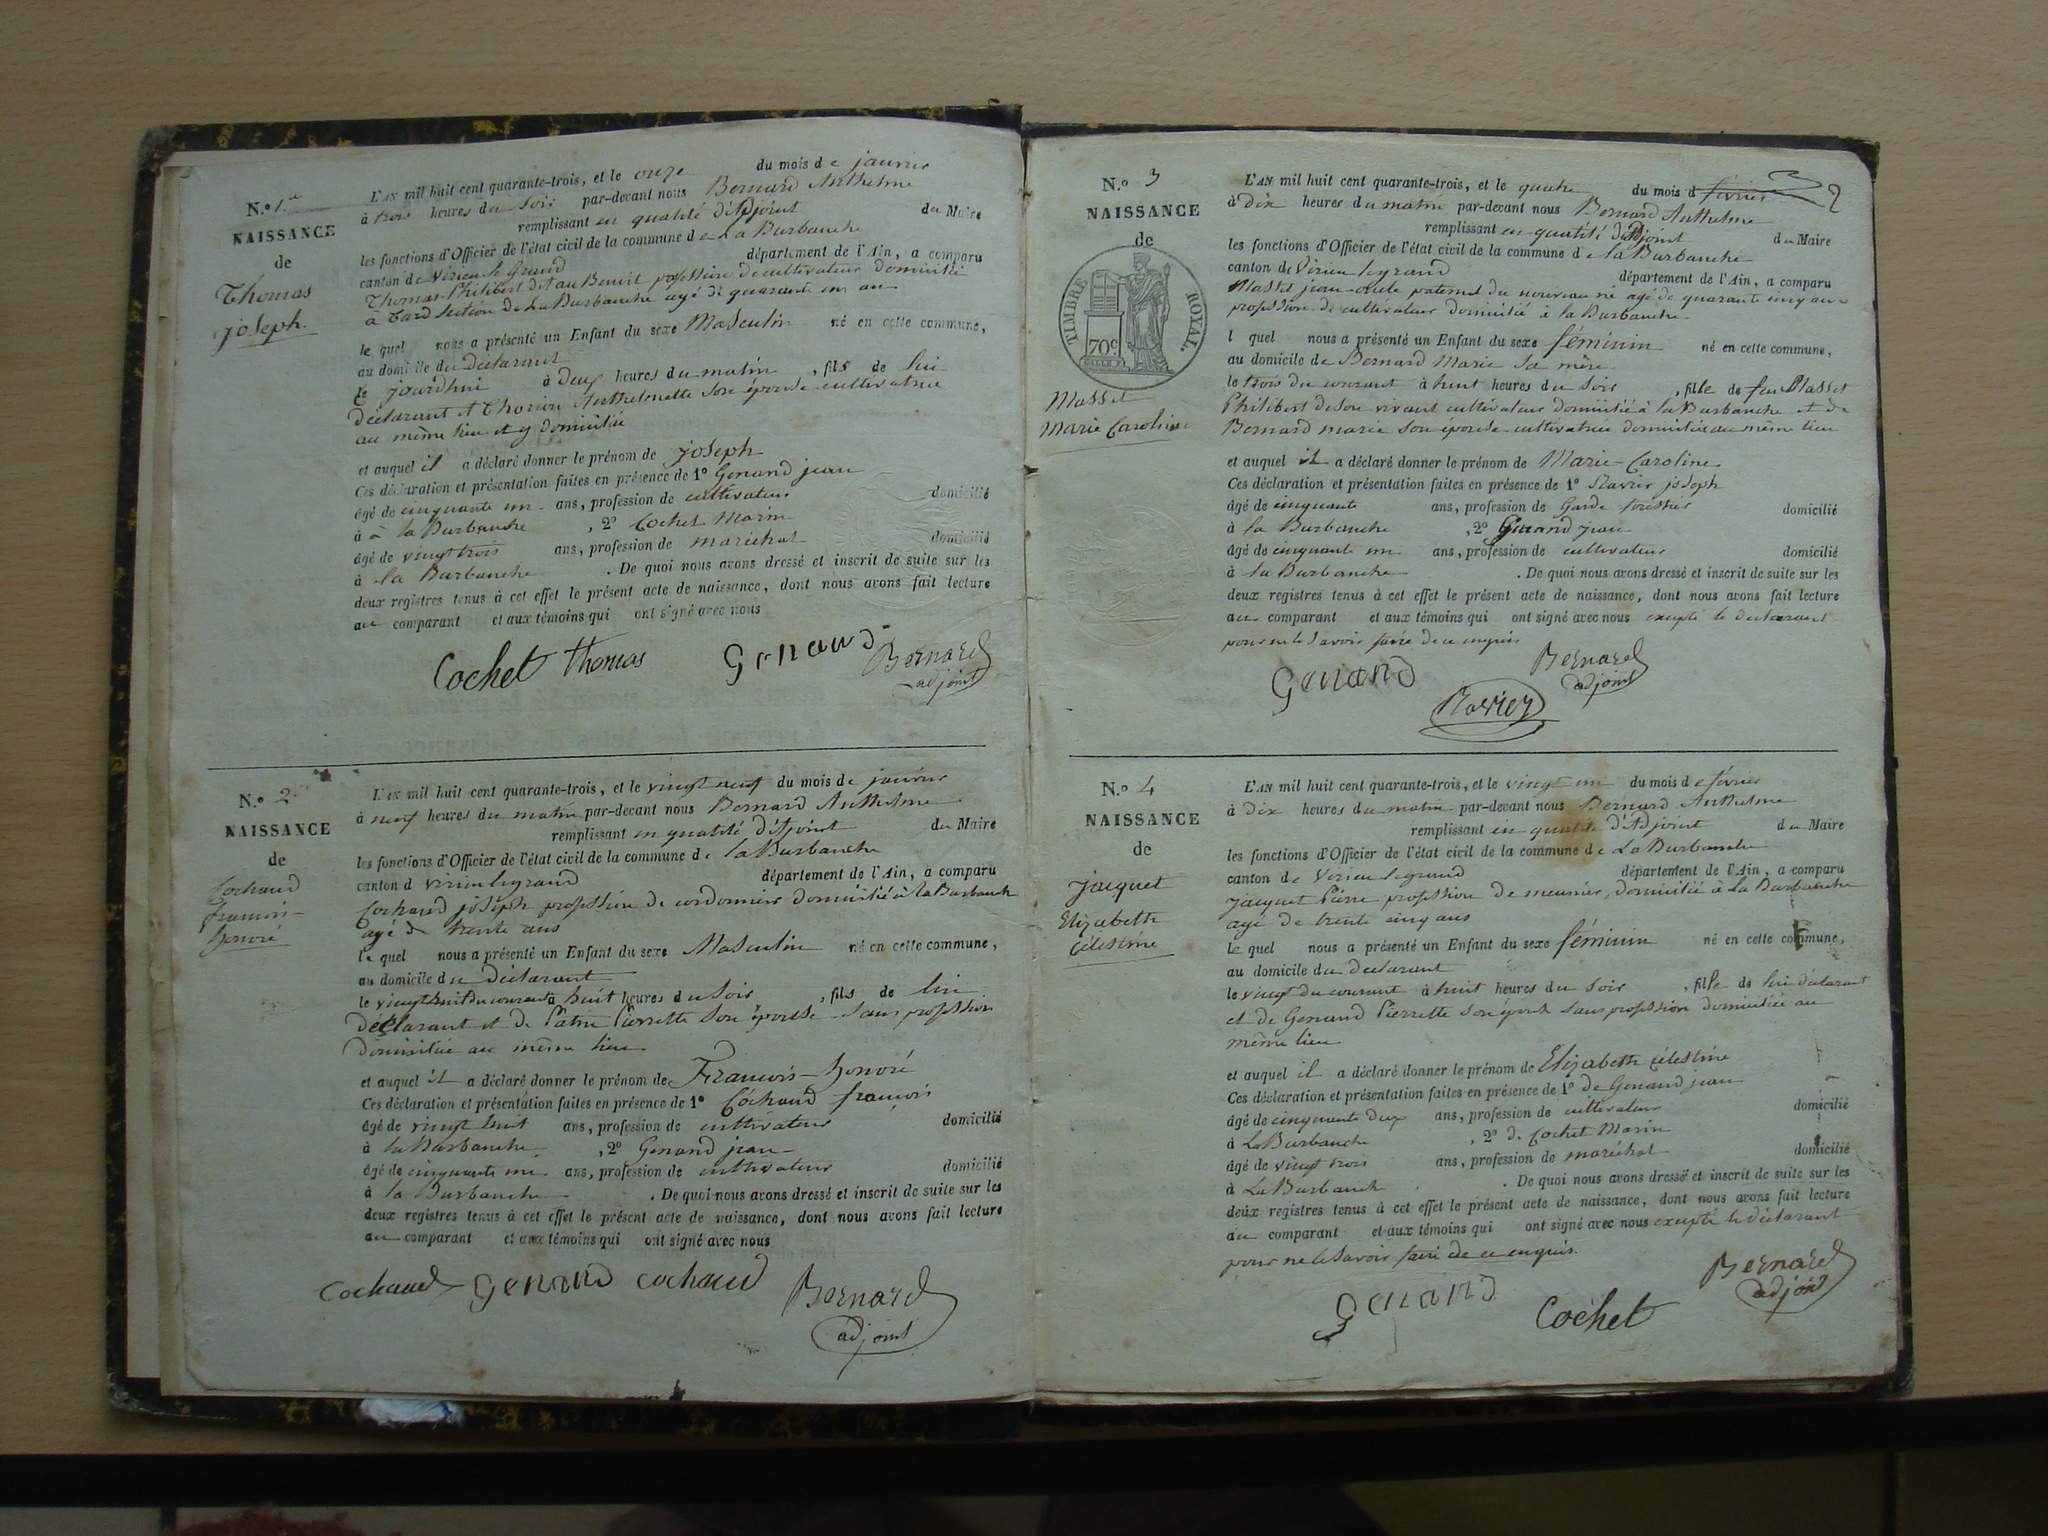 N.° 1.er
NAISSANCE
de
Thomas
joseph.
L'AN mil huit cent quarante-trois, et le onze du mois de janvier
à trois heures du soir par-devant nous Bernard Anthelme
remplissant en qualité d'Adjoint du Maire
les fonctions d'Officier de l'état civil de la commune de La Burbanche
canton de Virieu le Grand département de l'Ain, a comparu
Thomas Philibert dit au Benoit profession de cultivateur domicilié
à Tard section de La Burbanche agé de quarante un an
le quel nous a présenté un Enfant du sexe Masculin né en cette commune,
au domicile du déclarant
le jourdhui à deux heures du matin, fils de lui
déclarant et Thorion Anthelmette son épouse cultivatrice
au même lieu et y domiciliée
et auquel il a déclaré donner le prénom de joseph
Ces déclaration et présentation faites en présence de 1° Genand jean
âgé de cinquante un ans, profession de cultivateur domicilié
à à la Burbanche, 2° Cochet Marin
âgé de vingt trois ans, profession de maréchal domicilié
à la Burbanche. De quoi nous avons dressé et inscrit de suite sur les
deux registres tenus à cet effet le présent acte de naissance, dont nous avons fait lecture
au comparant et aux témoins qui ont signé avec nous
Cochet thomas Genand Bernard
adjoint
N.° 2
NAISSANCE
de
Cochaud
francois-
honoré
L'AN mil huit cent quarante-trois, et le vingt neuf du mois de janvier
à neuf heures du matin par-devant nous Bernard Anthelme
remplissant en qualité d'Adjoint du Maire
les fonctions d'Officier de l'état civil de la commune de la Burbanche
canton d virieu legrand département de l'Ain, a comparu
Cochaud joseph profession de cordonnier domicilié à la Burbanche
agé de trente ans
le quel nous a présenté un Enfant du sexe Masculin né en cette commune,
au domicile du déclarant
le vingt huit du courant à huit heures du soir, fils de lui
déclarant et de Pierrette son épouse sans profession
domiciliée au même lieu
et auquel il a déclaré donner le prénom de Francois-honoré
Ces déclaration et présentation faites en présence de 1° Cochaud francois
âgé de vingt huit ans, profession de cultivateur domicilié
à la Burbanche, 2° Genand jean
âgé de cinquante un ans, profession de cultivateur domicilié
à la Burbanche. De quoi nous avons dressé et inscrit de suite sur les
deux registres tenus à cet effet le présent acte de naissance, dont nous avons fait lecture
au comparant et aux témoins qui ont signé avec nous
Cochaud Genand cochaud Bernard
adjoint
N.° 3
NAISSANCE
de
TIMBRE ROYAL.
70c
Masset
Marie Caroline
L'AN mil huit cent quarante-trois, et le quatre du mois d février
à dix heures du matin par-devant nous Bernard Anthelme
remplissant en qualité d'Adjoint du Maire
les fonctions d'Officier de l'état civil de la commune de la Burbanche
canton de Virieu legrand département de l'Ain, a comparu
Masset jean oncle paternel du nouveau né agé de quarante cinq ans
profession de cultivateur domicilié à la Burbanche
l quel nous a présenté un Enfant du sexe féminin né en cette commune,
au domicile de Bernard Marie sa mère
le trois du courant à huit heures du soir, fille de feu Masset
Philibert de son vivant cultivateur domicilié à la Burbanche et de
Bernard marie son épouse cultivatrice domiciliée au même lieu
et auquel il a déclaré donner le prénom de Marie-Caroline
Ces déclaration et présentation faites en présence de 1° Ravier joseph
âgé de cinquante ans, profession de Garde forestier domicilié
à la Burbanche, 2° Genand jean
âgé de cinquante un ans, profession de cultivateur domicilié
à la Burbanche. De quoi nous avons dressé et inscrit de suite sur les
deux registres tenus à cet effet le présent acte de naissance, dont nous avons fait lecture
au comparant et aux témoins qui ont signé avec nous excepté le déclarant
pour ne le savoir faire de ce enquis
Genand Bernard
adjoint
Ravier
N.° 4
NAISSANCE
de
jacquet
Elizabeth
célestine
L'AN mil huit cent quarante-trois, et le vingt un du mois de février
à dix heures du matin par-devant nous Bernard Anthelme
remplissant en qualité d'Adjoint du Maire
les fonctions d'Officier de l'état civil de la commune de La Burbanche
canton de Virieu legrand département de l'Ain, a comparu
jacquet Pierre profession de meunier, domicilié à la Burbanche
agé de trente cinq ans
le quel nous a présenté un Enfant du sexe féminin né en cette commune,
au domicile du declarant
le vingt du courant à huit heures du soir, fille de lui déclarant
et de Genand Pierrette son épouse sans profession domiciliée au
même lieu
et auquel il a déclaré donner le prénom de Elizabeth célestine
Ces déclaration et présentation faites en présence de 1° de Genand jean
âgé de cinquante deux ans, profession de cultivateur domicilié
à La Burbanche, 2° de Cochet Marin
âgé de vingt trois ans, profession de maréchal domicilié
à La Burbanche. De quoi nous avons dressé et inscrit de suite sur les
deux registres tenus à cet effet le présent acte de naissance, dont nous avons fait lecture
au comparant et aux témoins qui ont signé avec nous excepté le déclarant
pour ne le savoir faire de ce enquis.
Genand Cochet Bernard
adjoint